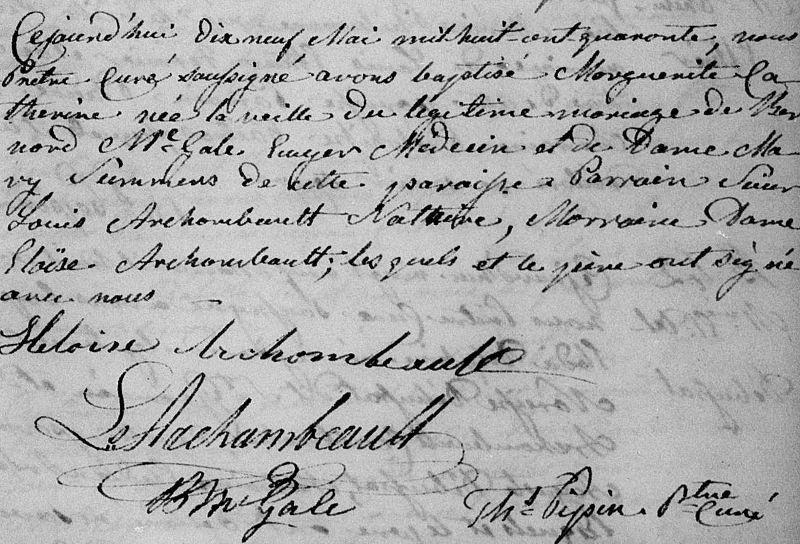 Cejourd'hui dix neuf Mai mil huit cent quarante, nous
Prêtre Curé soussigné avons baptisé Marguerite Ca
therine née la veille du légitime mariage de Ber
nard Mc Gale Ecuyer Médecin et de Dame Ma
ry Summers de cette paroisse Parrain Sieur
Louis Archambeault Notaire, Marraine Dame
Eloïse Archambeault, lesquels et le père ont signé
avec nous
Heloise Archambeault
Ls Archambeault
B Mc Gale
Ths Pepin Ptre
Curé